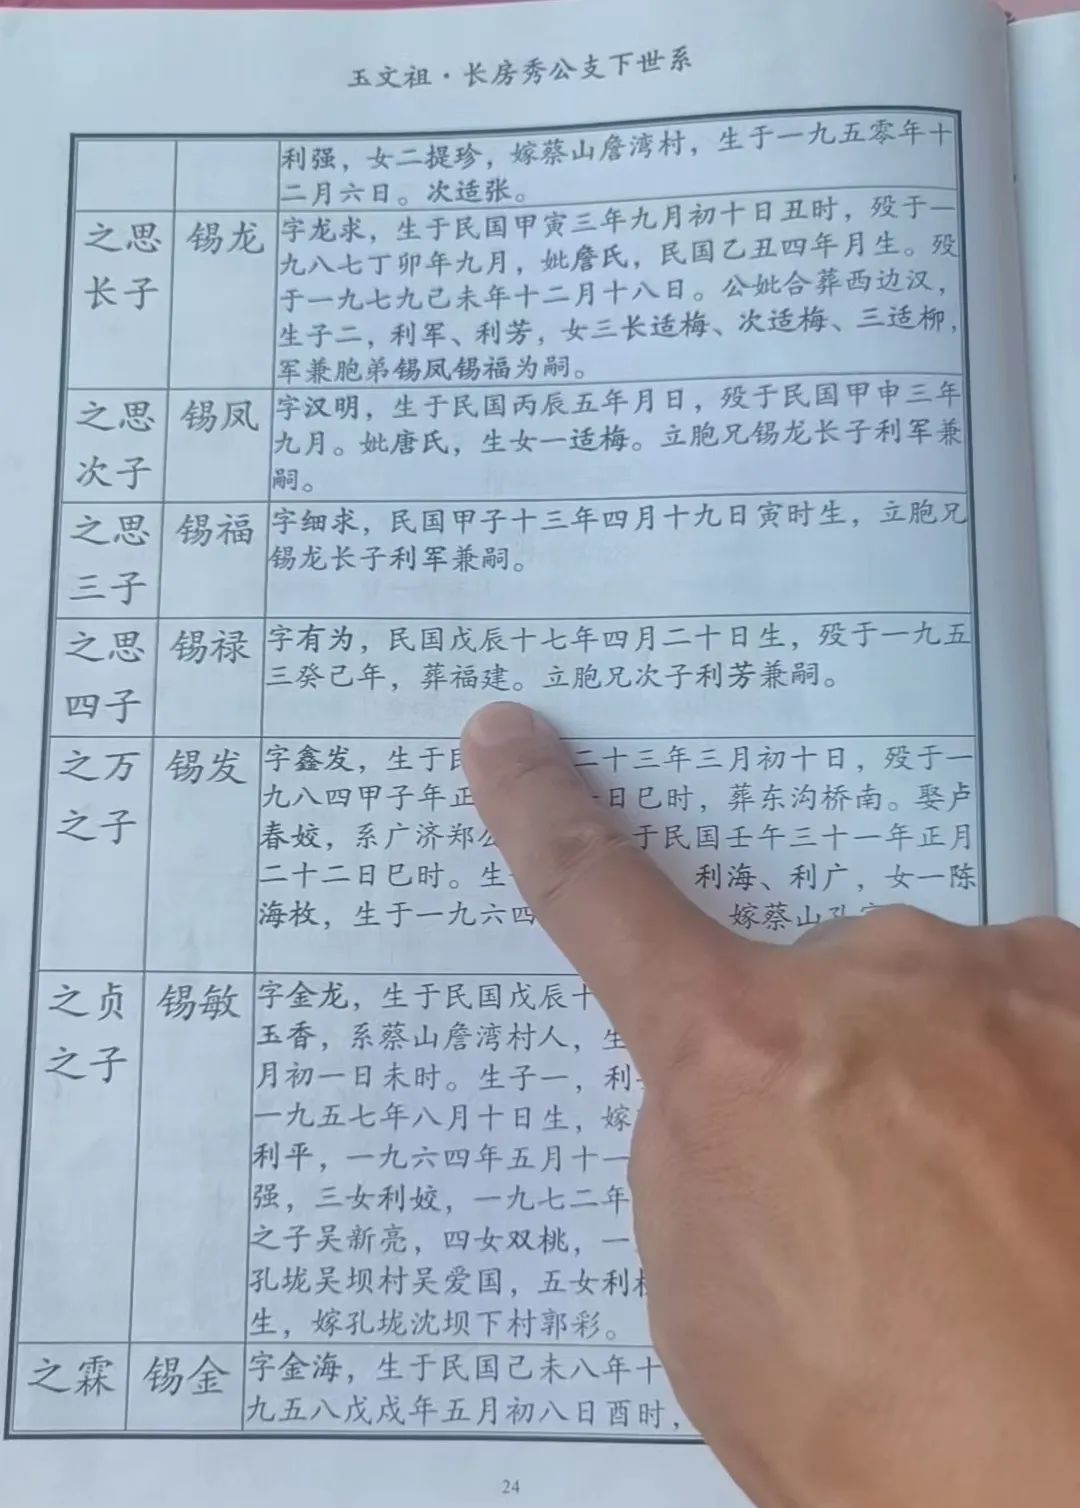 玉文祖·长房秀公支下世系
利强，女二提珍，嫁蔡山詹湾村，生于一九五零年十
二月六日。次适张。
之思
长子
锡龙
字龙求，生于民国甲寅三年九月初十日丑时，殁于一
九八七丁卯年九月，妣詹氏，民国乙丑四年月生。殁
于一九七九己未年十二月十八日。公妣合葬西边汉，
生子二，利军、利芳，女三长适梅、次适梅、三适柳，
军兼胞弟锡凤锡福为嗣。
之思
次子
锡凤
字汉明，生于民国丙辰五年月日，殁于民国甲申三年
九月。妣唐氏，生女一适梅。立胞兄锡龙长子利军兼
嗣。
之思
三子
锡福
字细求，民国甲子十三年四月十九日寅时生，立胞兄
锡龙长子利军兼嗣。
之思
四子
锡禄
字有为，民国戊辰十七年四月二十日生，殁于一九五
三癸己年，葬福建。立胞兄次子利芳兼嗣。
之万
之子
锡发
字鑫发，生于民 二十三年三月初十日，殁于一
九八四甲子年正 日巳时，葬东沟桥南。娶卢
春姣，系广济郑 于民国壬午三十一年正月
二十二日巳时。生 利海、利广，女一陈
海枚，生于一九六四 嫁蔡山孔
之贞
之子
锡敏
字金龙，生于民国戊辰十
玉香，系蔡山詹湾村人，生
月初一日未时。生子一，利
一九五七年八月十日生，嫁
利平，一九六四年五月十一
强，三女利姣，一九七二年
之子吴新亮，四女双桃，一
孔垅吴坝村吴爱国，五女利
生，嫁孔垅沈坝下村郭彩。
之霖
锡金
字金海，生于民国己未八年十
九五八戊戌年五月初八日酉时，
24